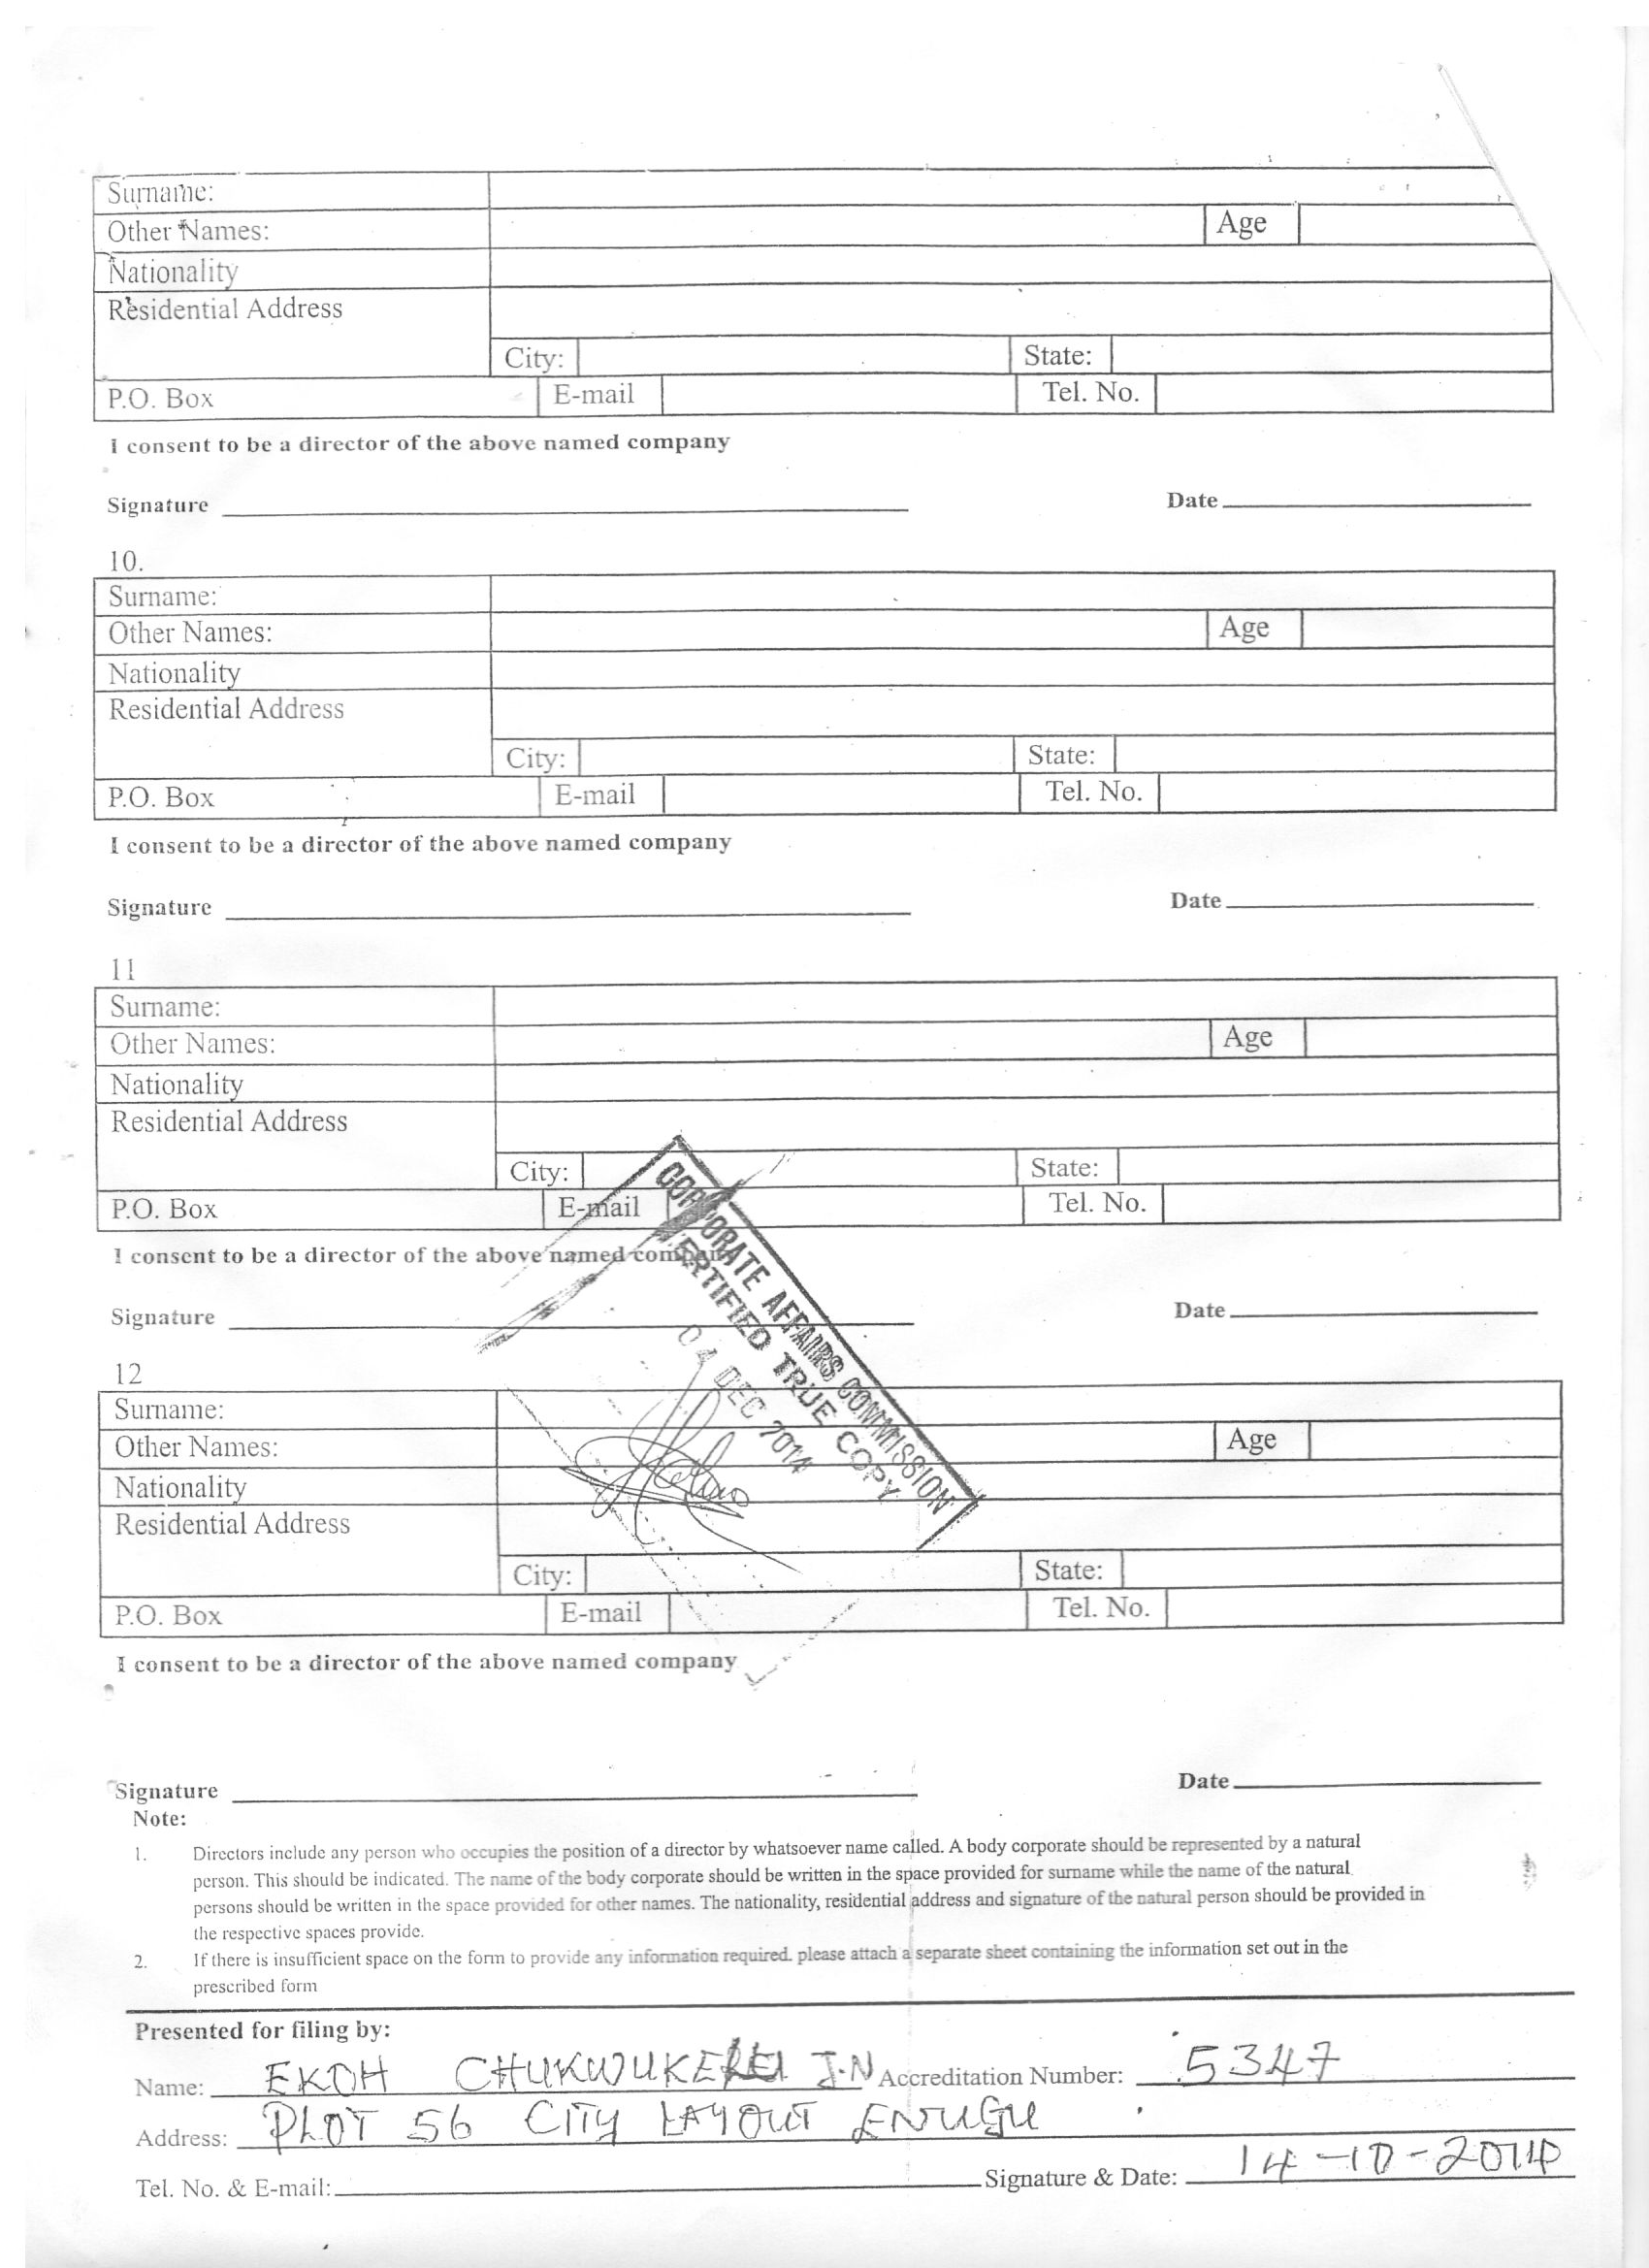 Surname:
Other Names: Age
Nationality
Residential Address
City: State:
P.O. Box E-mail Tel. No.
I consent to be a director of the above named company
Signature Date
10.
Surname:
Other Names: Age
Nationality
Residential Address
City: State:
P.O. Box E-mail Tel. No.
I consent to be a director of the above named company
Signature Date
11
Surname:
Other Names: Age
Nationality
Residential Address
City: State:
P.O. Box E-mail Tel. No.
I consent to be a director of the above named company
Signature Date
CORPORATE AFFAIRS COMMISSION
CERTIFIED TRUE COPY
04 DEC 2014
12
Surname:
Other Names: Age
Nationality
Residential Address
City: State:
P.O. Box E-mail Tel. No.
I consent to be a director of the above named company
Signature Date
Note:
1. Directors include any person who occupies the position of a director by whatsoever name called. A body corporate should be represented by a natural
person. This should be indicated. The name of the body corporate should be written in the space provided for surname while the name of the natural
persons should be written in the space provided for other names. The nationality, residential address and signature of the natural person should be provided in
the respective spaces provide.
2. If there is insufficient space on the form to provide any information required. please attach a separate sheet containing the information set out in the
prescribed form
Presented for filing by:
Name: EKOH J.N Accreditation Number: 5347
Address: PLOT 56 CITY LAYOUT ENUGU
Tel. No. & E-mail: Signature & Date: 14-10-2014